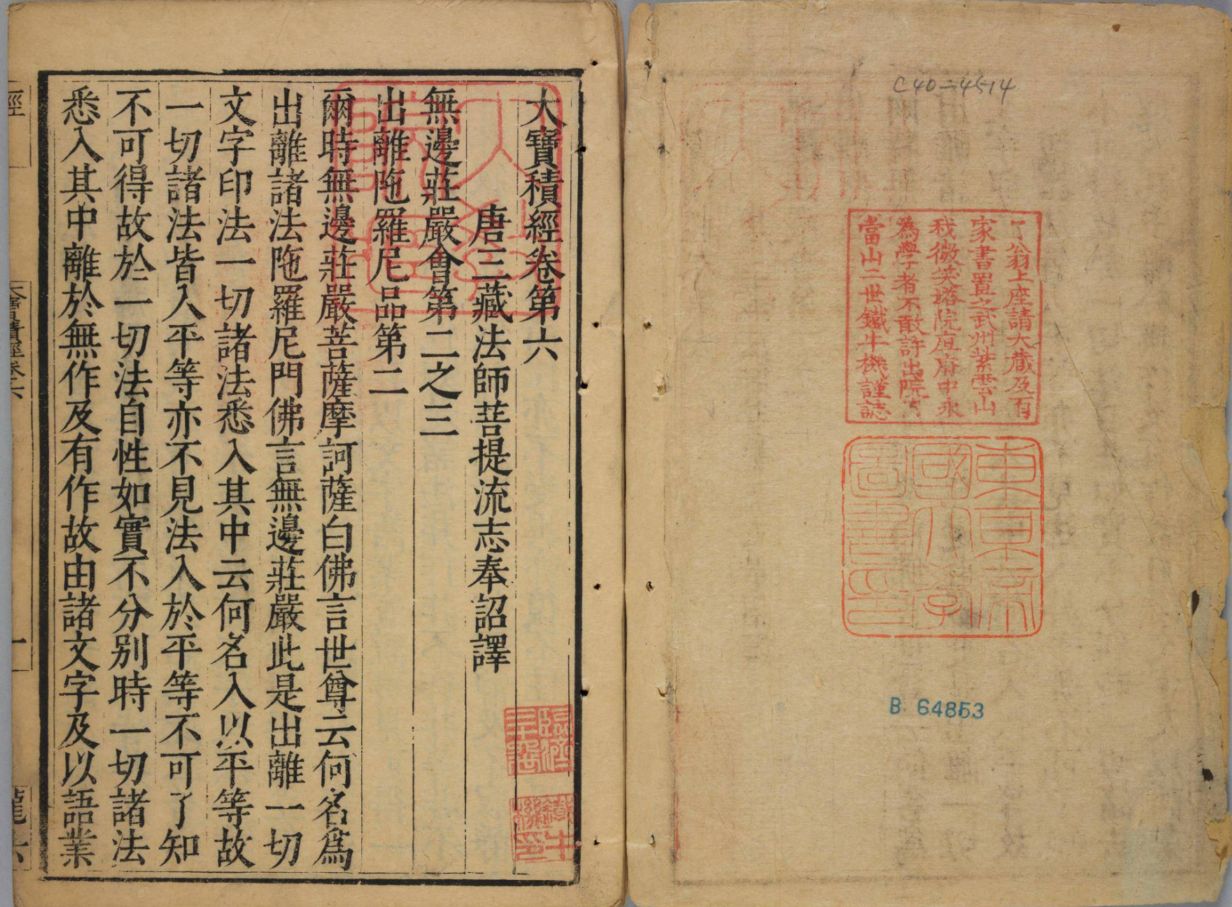 C40-4514
了翁上座請大藏及百
家書置之武州紫雲山
為學者不敢許出院內
當山二世鐵牛機謹誌
東京帝
國大學
圖書印
B 64853
大寶積經卷第六
唐三藏法師菩提流志奉詔譯
無邊莊嚴會第二之三
出離陁羅尼品第二
爾時無邊莊嚴菩薩摩訶薩白佛言世尊云何名為
出離諸法陁羅尼門佛言無邊莊嚴此是出離一切
文字印法一切諸法悉入其中云何名入以平等故
一切諸法皆入平等亦不見法入於平等不可了知
不可得故於一切法自性如實不分別時一切諸法
悉入其中離於無作及有作故由諸文字及以語業
經
大寶積經卷六
一
龍六